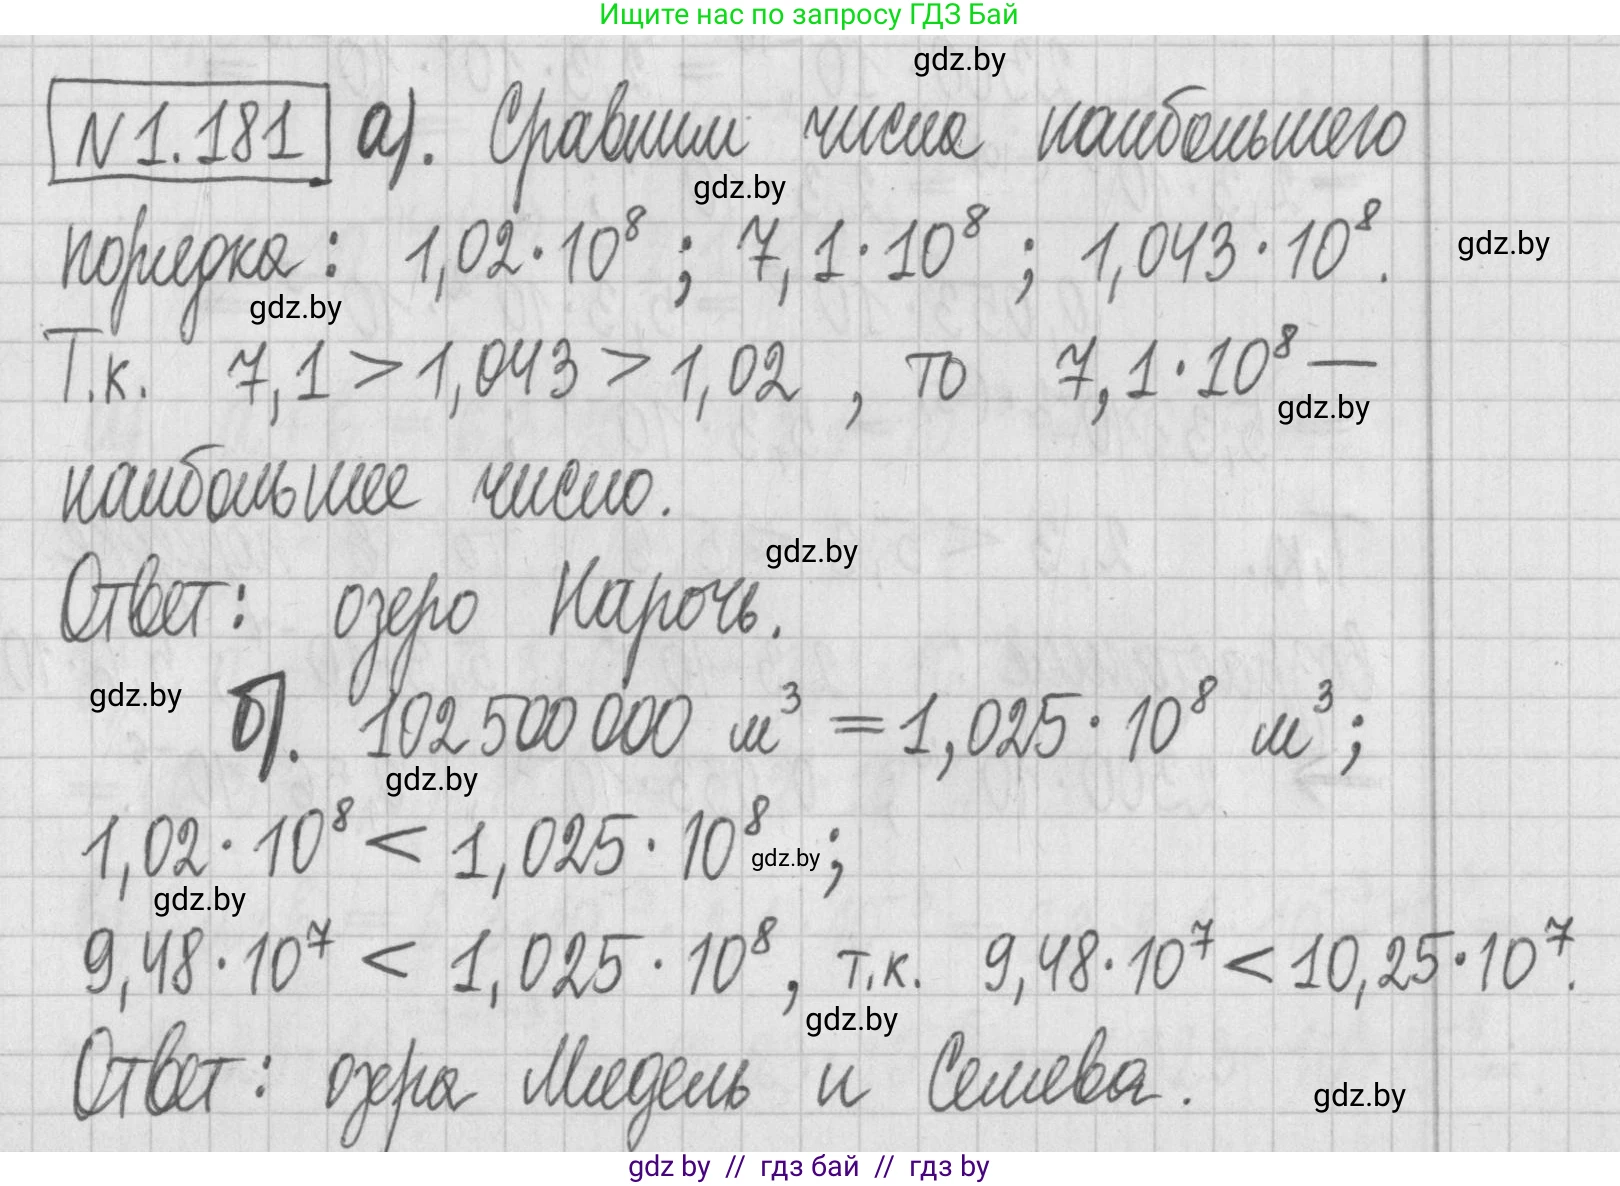 Ищите нас по запросу ГДЗ Бай
gdz.by
N 1.181 а). Сравним числа наибольшего
gdz.by
порядка: 1,02·10⁸; 7,1·10⁸; 1,043·10⁸.
gdz.by
gdz.by
Т.к. 7,1 > 1,043 > 1,02, то 7,1·10⁸ —
gdz.by
наибольшее число.
gdz.by
Ответ: озеро Нарочь.
gdz.by
б). 102 500 000 м³ = 1,025·10⁸ м³;
gdz.by
1,02·10⁸ < 1,025·10⁸;
gdz.by
gdz.by
9,48·10⁷ < 1,025·10⁸, т.к. 9,48·10⁷ < 10,25·10⁷.
gdz.by
Ответ: озёра Мядель и Селява.
gdz.by
gdz by // гдз бай // гдз by